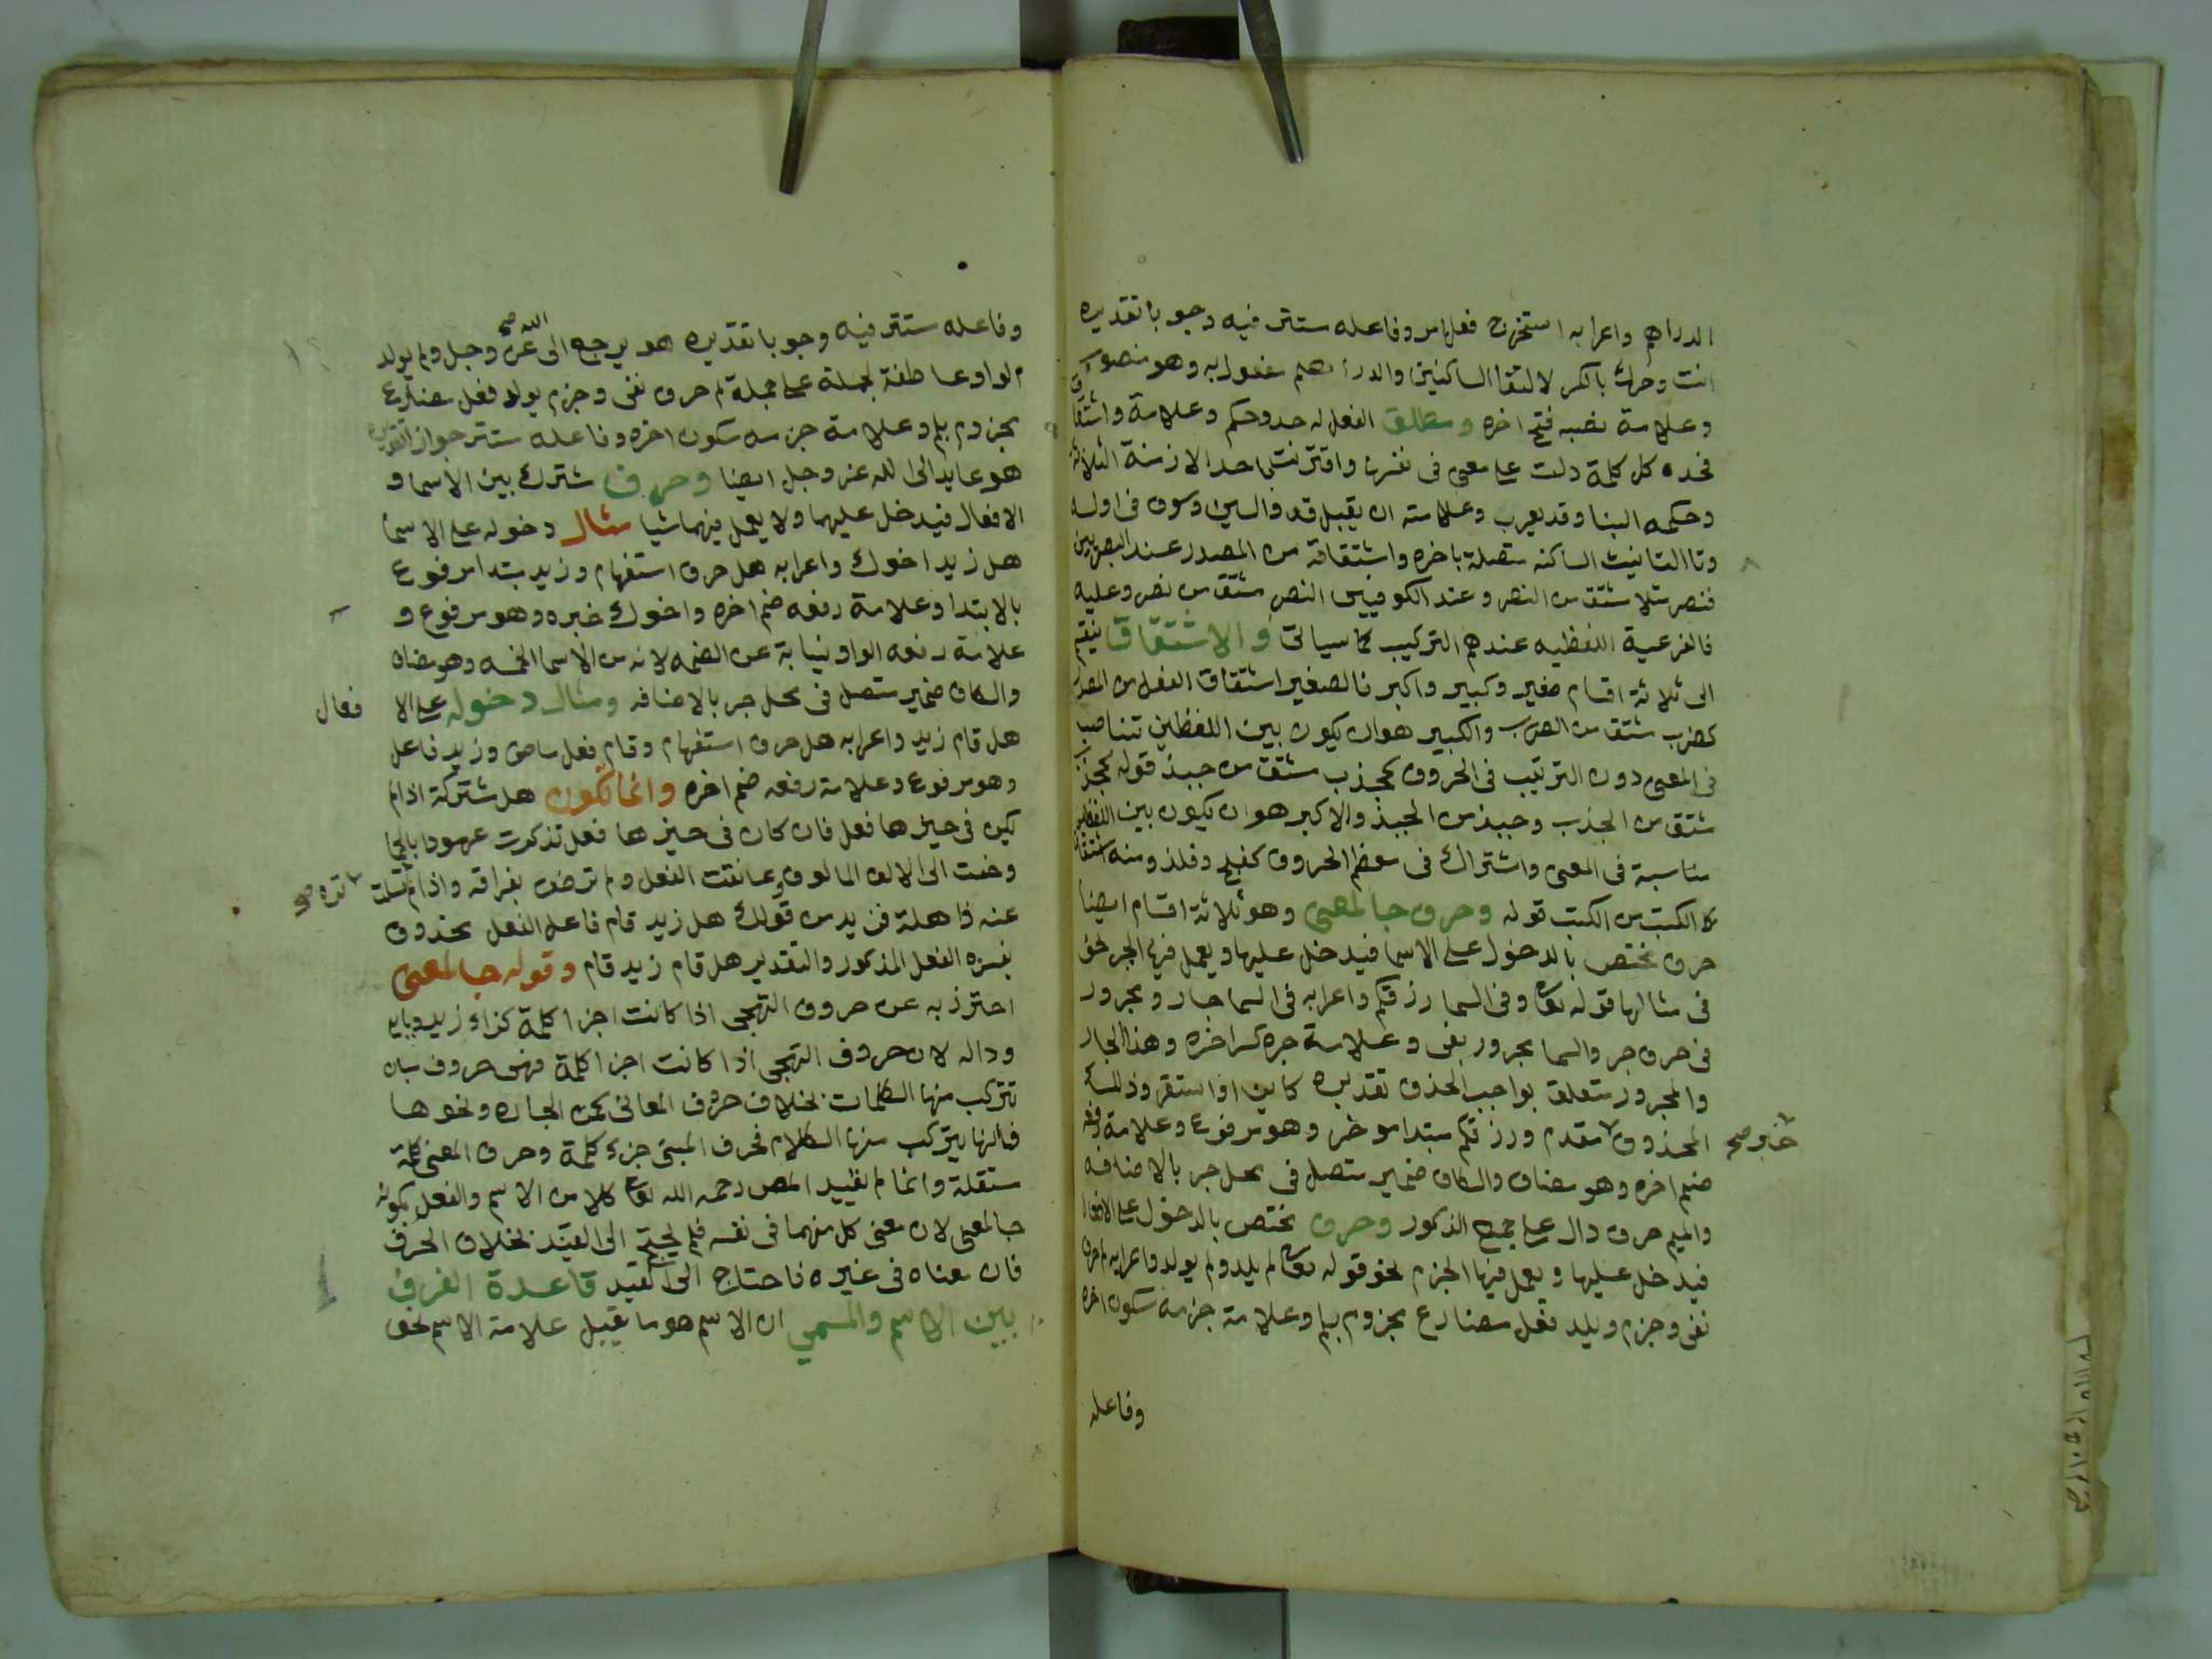 الدراهم واعرابه استخرج فعل امر وفاعله مستتر فيه وجوبا تقديره
انت وحرك بالكسر لالتقا الساكنين والدراهم مفعول به وهو منصوب
وعلامة نصبه فتح اخره ومطلق الفعل له حد وحكم وعلامة واشتقاق
فحده كل كلمة دلت على معنى في نفسها واقترنت باحد الازمنة الثلاثة
وحكمه البنا وقد يعرب وعلامته ان يقبل قد والسين وسوف في اوله
وتا التانيث الساكنه متصلة باخره واشتقاقة من المصدر عند البصريين
فنصر مثلا مشتق من النصر وعند الكوفيين النصر مشتق من نصر وعليه
فالفرعية اللفظيه عندهم التركيب كما سياتي والاشتقاق ينقسم
الى ثلاثة اقسام صغير وكبير واكبر فالصغير اشتقاق الفعل من المصدر
كضرب مشتق من الضرب والكبير هو ان يكون بين اللفظين تناصبا
في المعنى دون الترتيب في الحروف كجذب مشتق من جبذ قوله كجذب
مشتق من الجذب وجبذ من الجبذ والاكبر هو ان يكون بين اللفظين
مناسبة في المعنى واشتراك في معظم الحروف كفلج وفلذ ومنه اشتقاق
كا الكتب من الكتب قوله وحرف جا لمعنى وهو ثلاثة اقسام ايضا
حرف مختص بالدخول على الاسما فيدخل عليها ويعمل فيها الجر نحو
في مثالها قوله تعالى وفي السما رزقكم واعرابه في السما جار ومجرور
في حرف جر والسما مجرور بفي وعلامة جره كسر اخره وهذا الجار
والمجرور متعلق بواجب الحذف تقديره كاين او استقر وذلك
المحذوف مقدم ورزقكم مبتدا موخر وهو مرفوع وعلامة رفعه
خبر صح
ضم اخره وهو مضاف والكاف ضمير متصل في محل جر بالاضافه
والميم حرف دال على جمع الذكور وحرف مختص بالدخول على الافعال
فيدخل عليها ويعمل فيها الجزم نحو قوله تعالى لم يلد ولم يولد واعرابه لم حرف
نفي وجزم ويلد فعل مضارع مجزوم بلم وعلامة جزمه سكون اخره
وفاعله
وفاعله مستتر فيه وجوبا تقديره هو يرجع الى الله صح عز وجل ولم يولد
الواو عاطفة لجملة على جملة لم حرف نفي وجزم يولد فعل مضارع
مجزوم بلم وعلامة جزمه سكون اخره وفاعله مستتر جوازا تقديره
هو عايد الى الله عز وجل ايضا وحرف مشترك بين الاسما و
الافعال فيدخل عليهما ولا يعمل فيهما شيا مثال دخوله على الاسما
هل زيد اخوك واعرابه هل حرف استفهام وزيد مبتدا مرفوع
بالابتدا وعلامة رفعه ضم اخره واخوك خبره وهو مرفوع و
علامة رفعه الواو نيابة عن الضمه لانه من الاسما الخمسه وهو مضاف
والكاف ضمير متصل في محل جر بالاضافه ومثال دخوله على الا فعال
هل قام زيد واعرابه هل حرف استفهام وقام فعل ماض وزيد فاعل
وهو مرفوع وعلامة رفعه ضم اخره وانما تكون هل مشتركة اذا لم
يكن في حيزها فعل فان كان في حيزها فعل تذكرت عهودا بالحما
وحنت الى الالف المالوف وعانقت الفعل ولم ترض بفراقه واذا لم
تره صح
عنه ذاهلة فزيد من قولك هل زيد قام فاعل الفعل محذوف
يفسره الفعل المذكور والتقدير هل قام زيد قام وقوله جا لمعنى
احترز به عن حروف التهجي اذا كانت اجزا كلمة كزاء زيد ويايه
وداله لان حروف التهجي اذا كانت اجزا كلمة فهي حروف مبان
تتركب منها الكلمات بخلاف حروف المعاني كمن الجاره ونحوها
فانها يتركب منها الكلام فحرف المبنى جزء كلمة وحرف المعنى كلمة
مستقلة وانما لم يقيد المص رحمه الله تعالى كلا من الاسم والفعل بكونه
جا لمعنى لان معنى كل منهما في نفسه فلم يحتج الى القيد بخلاف الحرف
فان معناه في غيره فاحتاج الى القيد قاعدة الفرق
بين الاسم والمسمى ان الاسم هو ما يقبل علامة الاسم نحو